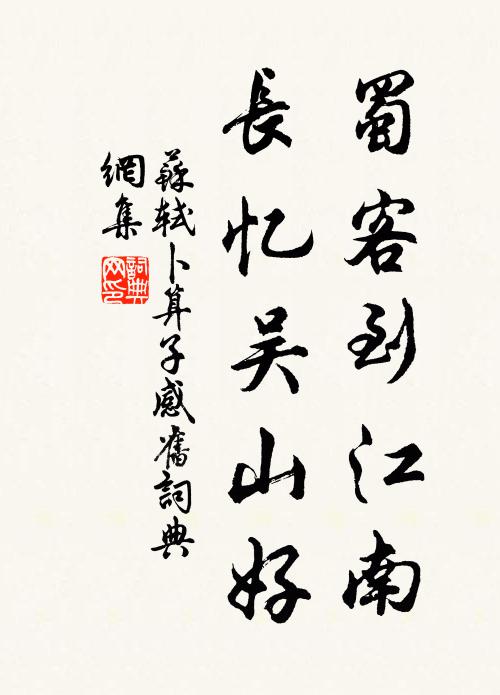 蜀客到江南
長忆吴山好
蘇軾卜算子感舊詞典
網集
詞典網印